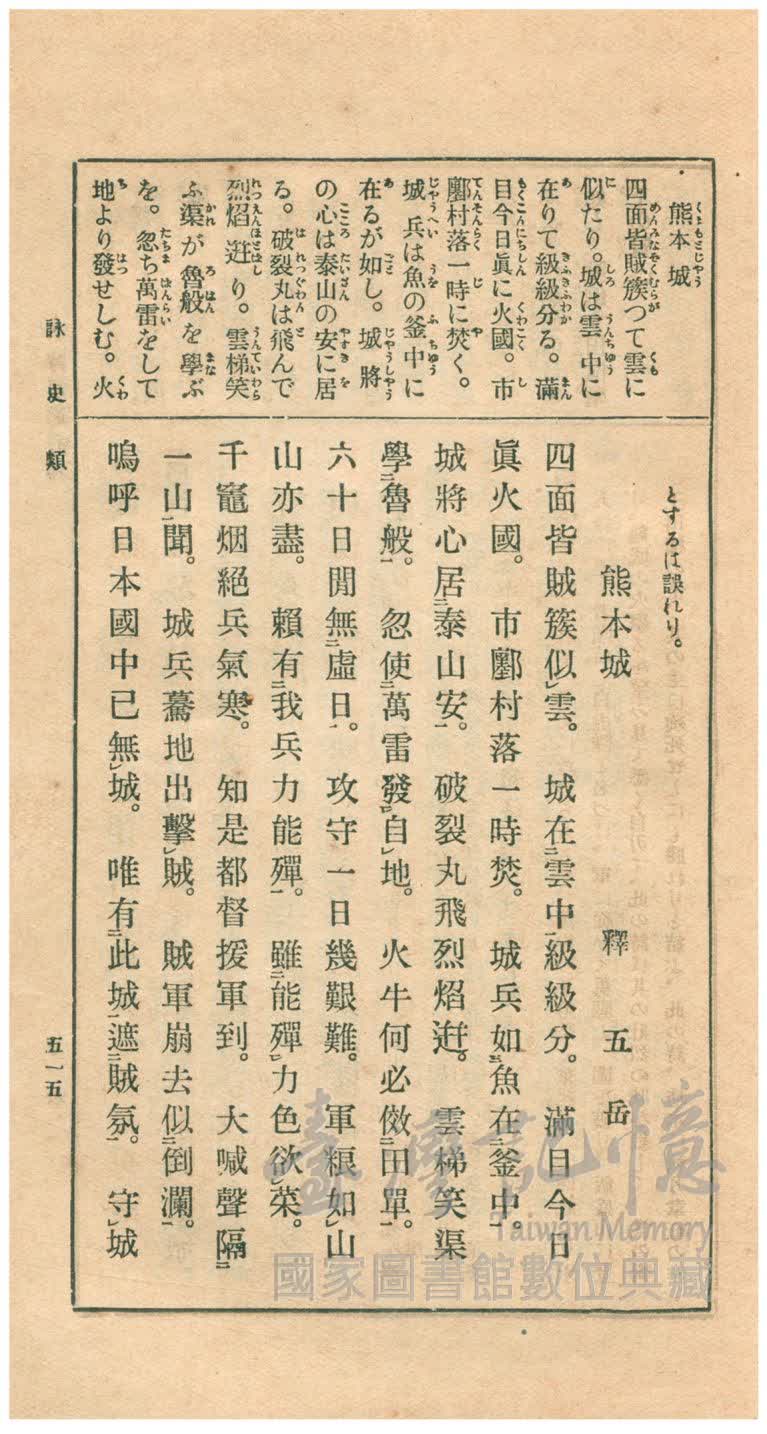 熊本城
四面皆賊簇つて雲に
似たり。城は雲中に
在りて級級分る。滿
目今日眞に火國。市
鄽村落一時に焚く。
城兵は魚の釜中に
在るが如し。城將
の心は泰山の安に居
る。破裂丸は飛んで
烈焰迸り。雲梯笑
ふ渠が魯般を學ぶ
を。忽ち萬雷をして
地より發せしむ。火
とするは誤れり。
熊本城 釋五岳
四面皆賊簇似雲。城在雲中級級分。滿目今日
眞火國。市鄽村落一時焚。城兵如魚在釜中。
城將心居泰山安。破裂丸飛烈焰迸。雲梯笑渠
學魯般。忽使萬雷發自地。火牛何必傚田單。
六十日閒無虛日。攻守一日幾艱難。軍粮如山
山亦盡。賴有我兵力能殫。雖能殫力色欲菜。
千竈烟絕兵氣寒。知是都督援軍到。大喊聲隔
一山聞。城兵驀地出擊賊。賊軍崩去似倒瀾。
嗚呼日本國中已無城。唯有此城遮賊氛。守城
詠史類
五一五
臺灣記憶
Taiwan Memory
國家圖書館數位典藏